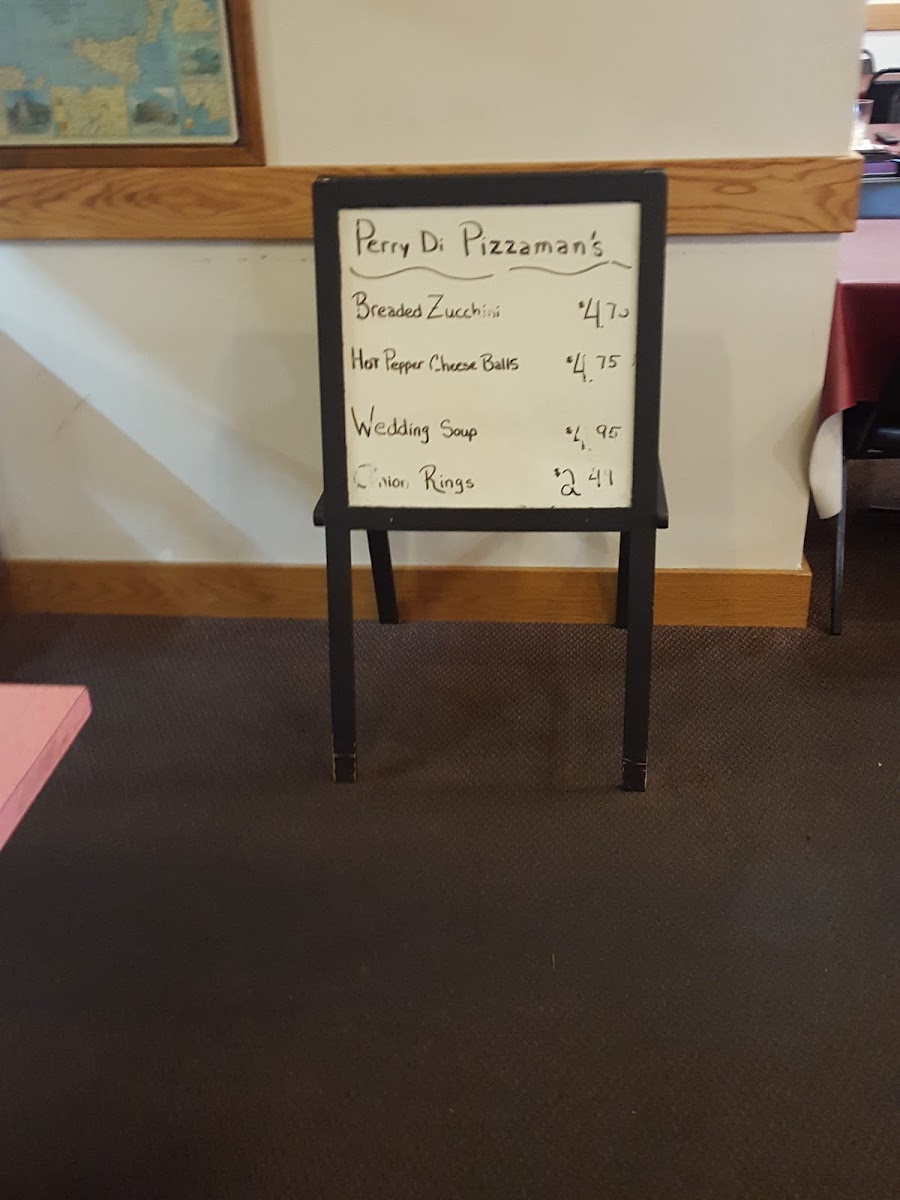 Perry Di Pizzaman's
Breaded Zucchini $4.70
Hot Pepper Cheese Balls $4.75
Wedding Soup $4.95
Onion Rings $2.49